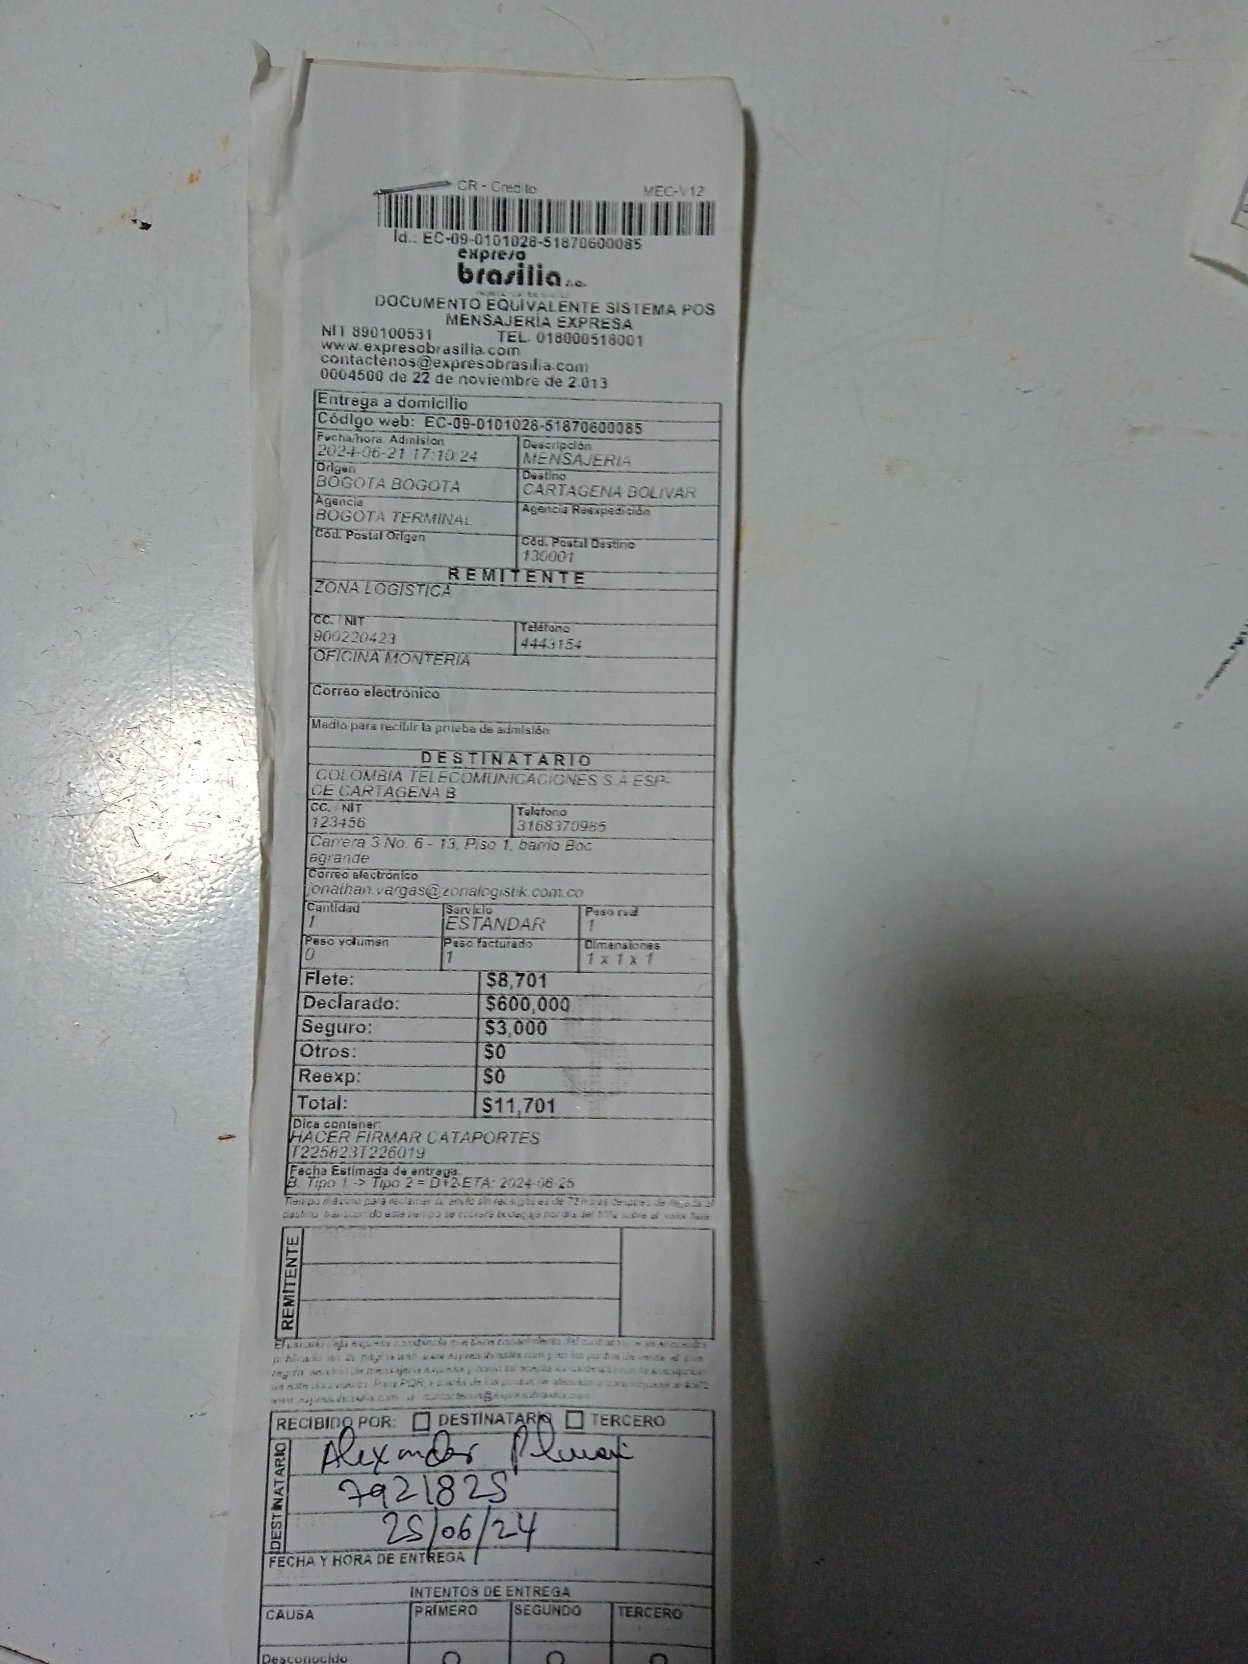 CR - Credito MEC-V12
Id.: EC-09-0101028-51870600085
expreso
brasilia s.a.
DOCUMENTO EQUIVALENTE SISTEMA POS
MENSAJERIA EXPRESA
NIT 890100531 TEL. 018000518001
www.expresobrasilia.com
contactenos@expresobrasilia.com
0004500 de 22 de noviembre de 2.013
Entrega a domicilio
Código web: EC-09-0101028-51870600085
Fecha/hora. Admisión Descripción
2024-06-21 17:10:24 MENSAJERIA
Origen Destino
BOGOTA BOGOTA CARTAGENA BOLIVAR
Agencia Agencia Reexpedición
BOGOTA TERMINAL
Cód. Postal Origen Cód. Postal Destino
130001
REMITENTE
ZONA LOGISTICA
CC. / NIT Teléfono
900220423 4443154
OFICINA MONTERIA
Correo electrónico
Medio para recibir la prueba de admisión
DESTINATARIO
COLOMBIA TELECOMUNICACIONES S.A ESP-
CE CARTAGENA B
CC. / NIT Teléfono
123456 3168370985
Carrera 3 No. 6 - 13, Piso 1, barrio Boc
agrande
Correo electrónico
jonathan.vargas@zonalogistik.com.co
Cantidad Servicio Peso real
1 ESTANDAR 1
Peso volumen Peso facturado Dimensiones
0 1 1 x 1 x 1
Flete: $8,701
Declarado: $600,000
Seguro: $3,000
Otros: $0
Reexp: $0
Total: $11,701
Dice contener:
HACER FIRMAR CATAPORTES
T225823T226019
Fecha Estimada de entrega
B. Tipo 1 -> Tipo 2 = D+2 ETA: 2024-06-25
Tiempo máximo para reclamar su envío sin recargos es de 72 horas después de llegada al
destino, transcurrido este tiempo se cobrará bodegaje por día del 10% sobre el valor flete
REMITENTE
RECIBIDO POR: DESTINATARIO TERCERO
DESTINATARIO
Alexander
7921825
25/06/24
FECHA Y HORA DE ENTREGA
INTENTOS DE ENTREGA
CAUSA PRIMERO SEGUNDO TERCERO
Desconocido